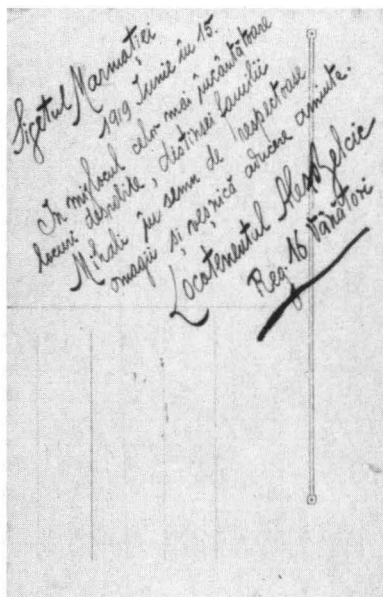 Sigetul Marmației
1919 Iunie în 15.
In mijlocul celor mai încântătoare
locuri desrobite, distinsei familii
Mihali în semn de respectoase
omagii și veșnică aducere aminte.
Locotenentul
Reg. 16 Vânători